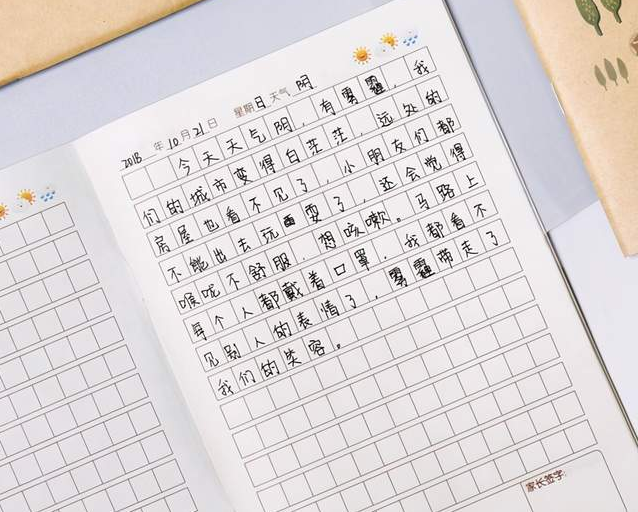 2018 年 10 月 21 日 星期日 天气 阴
今天天气阴,有雾霾,我
们的城市变得白茫茫,远处的
房屋也看不见了,小朋友们都
不能出去玩耍了,还会觉得
喉咙不舒服,想咳嗽。马路上
每个人都戴着口罩,我都看不
见别人的表情了,雾霾带走了
我们的笑容。
家长签字: